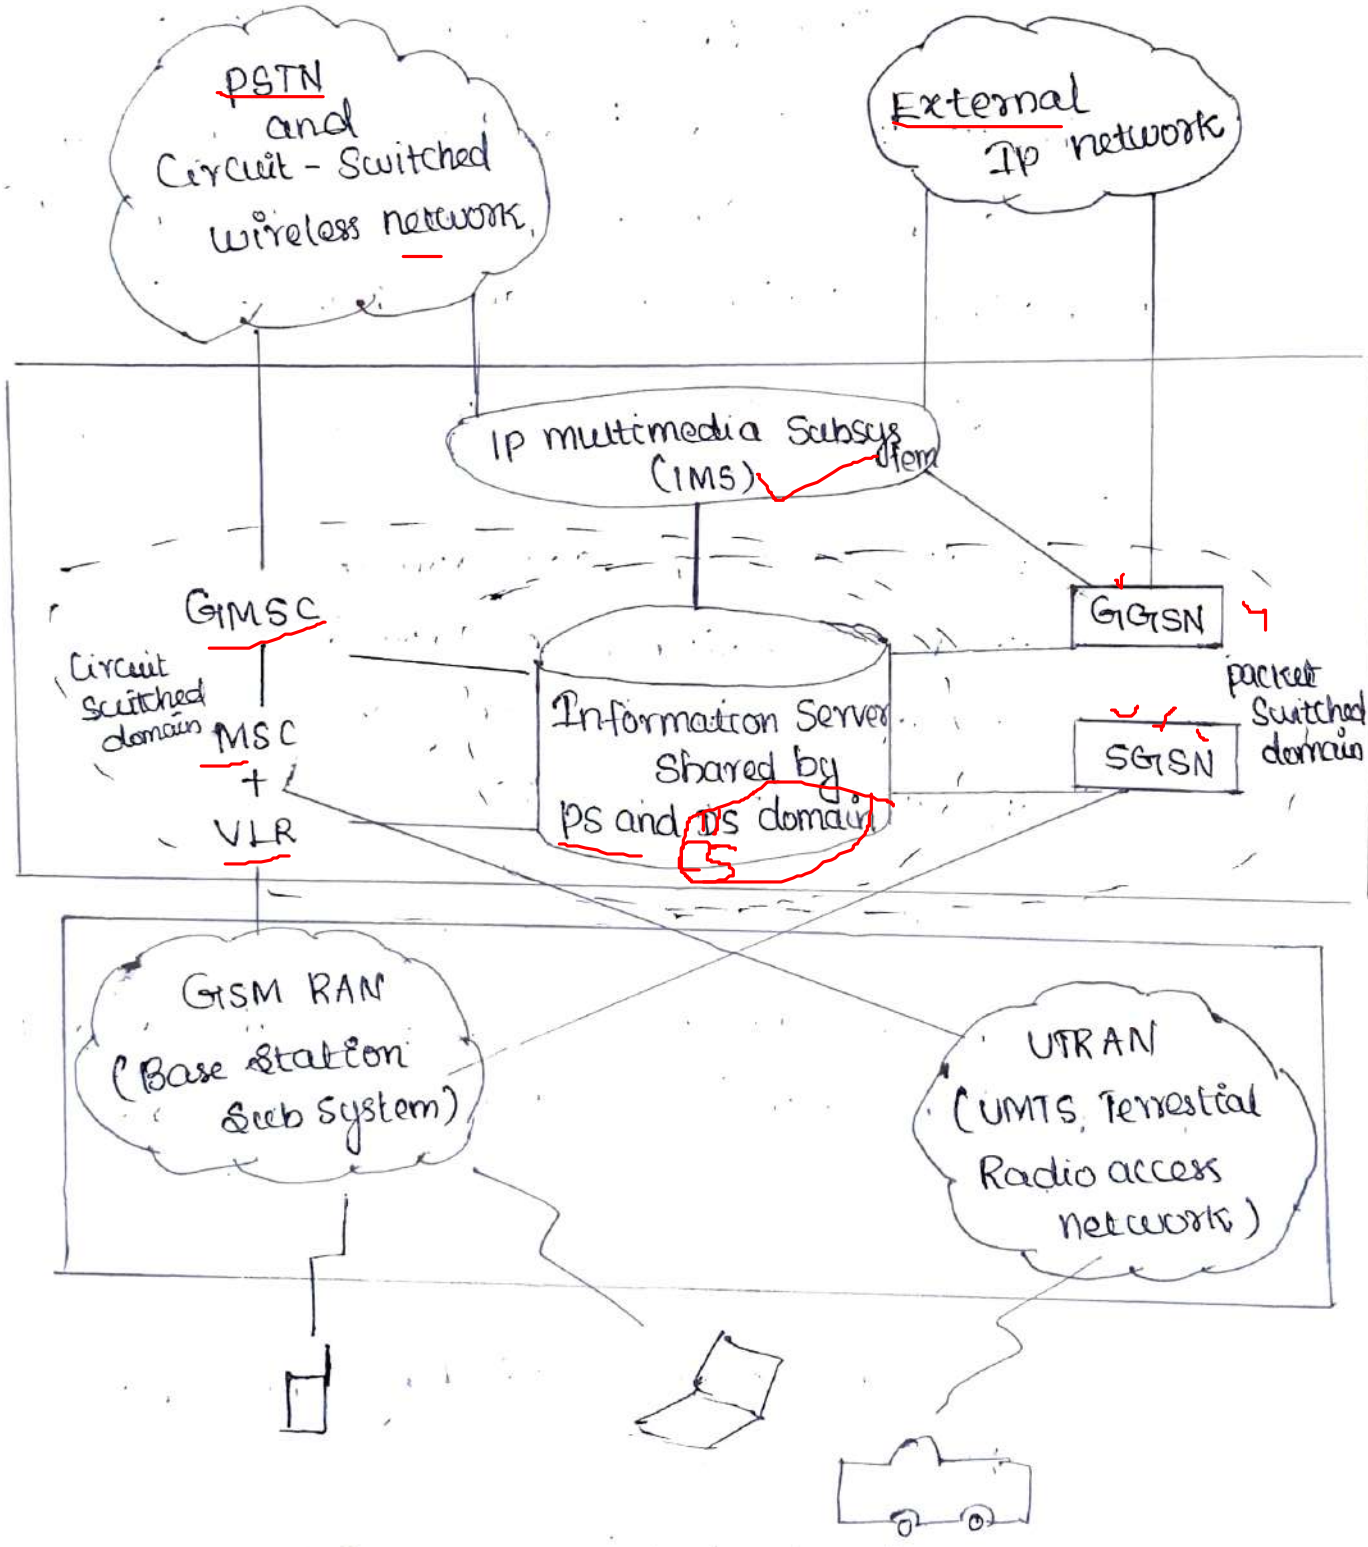 PSTN
and
Circuit - Switched
wireless network
External
IP network
IP multimedia Subsys
tem
(IMS)
GMSC
GGSN
Circuit
switched
domain
packet
Switched
domain
MSC
+
VLR
Information Server
Shared by
PS and DS domain
CS
SGSN
GSM RAN
(Base Station
Sub System)
UTRAN
(UMTS, Terrestial
Radio access
network)